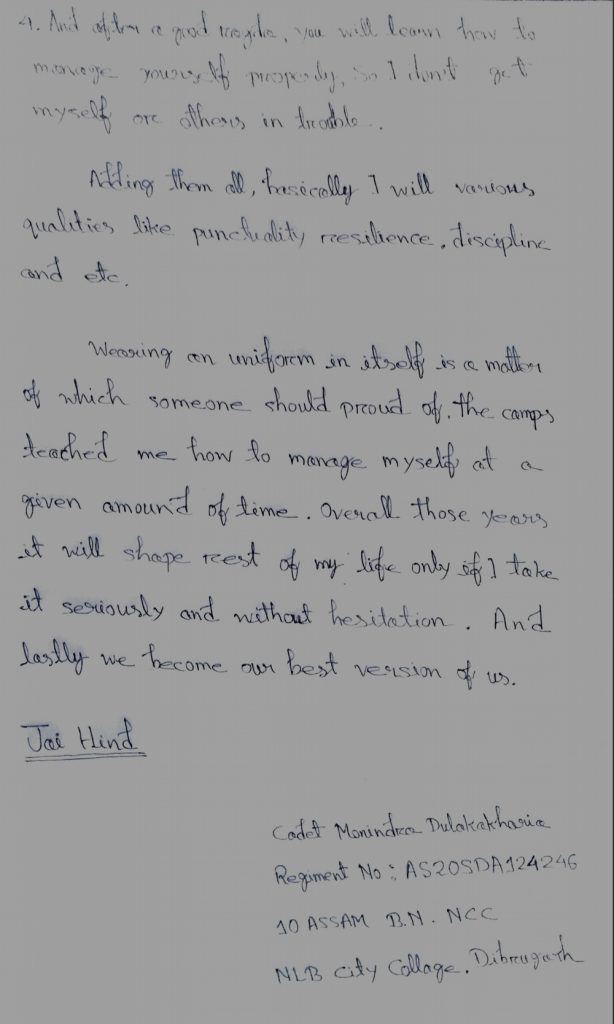 4. And after a good , you will learn how to
manage yourself properly, so I don't get
myself ore others in trouble.
Adding them all, basically I will various
qualities like punctuality reesilience, discipline
and etc.
Wearing an uniform in itself is a matter
of which someone should proud of. the camps
teached me how to manage myself at a
given amound of time. Overall those years
it will shape reest of my life only if I take
it seriously and without hesitation. And
lastly we become our best version of us.
Jai Hind
Cadet Monindra Dulakakharia
Regiment No : AS20SDA124246
10 ASSAM B.N. NCC
NLB City Collage, Dibrugarh